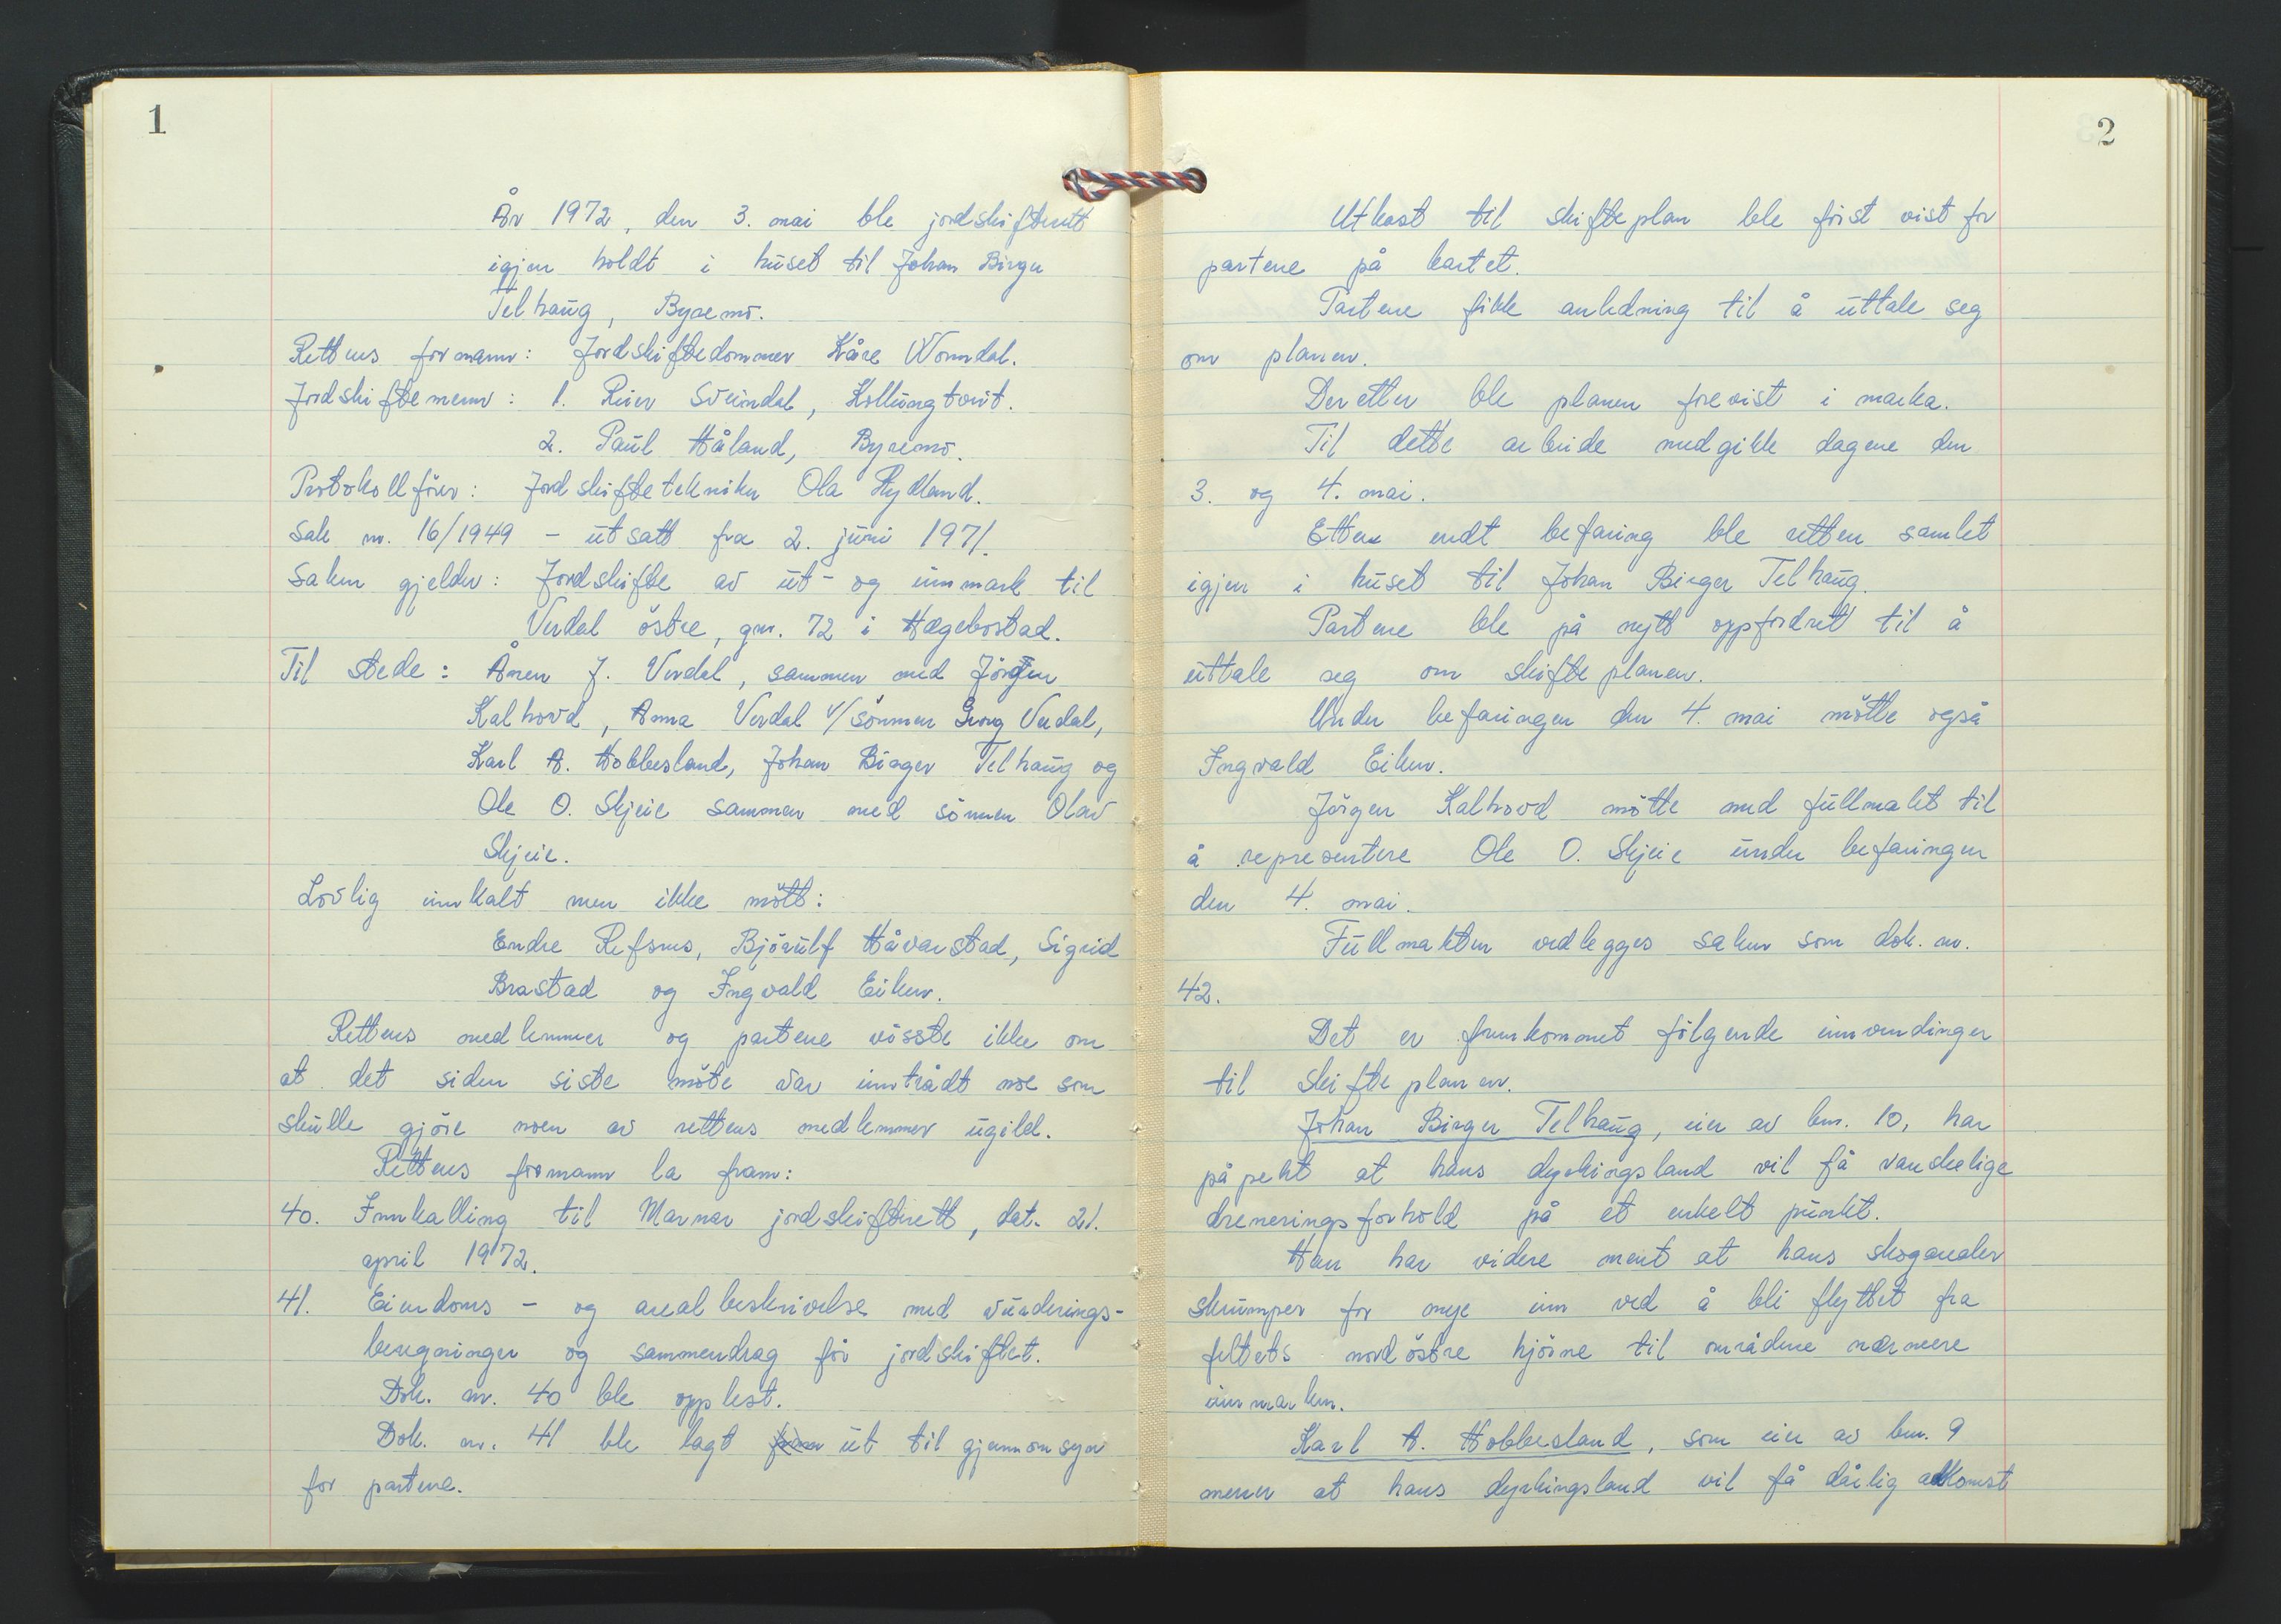 1
År 1972, den 3. mai ble jordskifterett
igjen holdt i huset til Johan Birger
Telhaug, Byremo.
Rettens formann: Jordskiftedommer Kåre Worndal.
Jordskiftemenn: 1. Reier Sveindal, Kollungtveit.
2. Paul Håland, Byremo.
Protokollfører: Jordskiftetekniker Ola Rydland.
Sak nr. 16/1949 - utsatt fra 2. juni 1971.
Saken gjelder: Jordskifte av ut- og innmark til
Verdal östre, gnr. 72 i Hægebostad.
Til stede: Ånen J. Verdal, sammen med Jörgen
Kalhovd, Anna Verdal v/sönnen Georg Verdal,
Karl A. Hobbesland, Johan Birger Telhaug og
Ole O. Skjeie sammen med sönnen Olav
Skjeie.
Lovlig innkalt men ikke mött:
Endre Refsnes, Björulf Håvarstad, Sigrid
Brastad og Ingvald Eiken.
Rettens medlemmer og partene visste ikke om
at det siden siste möte var inntrådt noe som
skulle gjöre noen av rettens medlemmer ugild.
Rettens formann la fram:
40. Innkalling til Marnar jordskifterett, dat. 21.
april 1972.
41. Eiendoms- og arealbeskrivelse med vurderings-
beregninger og sammendrag för jordskiftet.
Dok. nr. 40 ble opplest.
Dok. nr. 41 ble lagt ut til gjennomsyn
for partene.
2
Utkast til skifteplan ble först vist for
partene på kartet.
Partene fikk anledning til å uttale seg
om planen.
Deretter ble planen forevist i marka.
Til dette arbeide medgikk dagene den
3. og 4. mai.
Etter endt befaring ble retten samlet
igjen i huset til Johan Birger Telhaug.
Partene ble på nytt oppfordret til å
uttale seg om skifteplanen.
Under befaringen den 4. mai mötte også
Ingvald Eiken.
Jörgen Kalhovd mötte med fullmakt til
å representere Ole O. Skjeie under befaringen
den 4. mai.
Fullmakten vedlegges saken som dok. nr.
42.
Det er fremkommet fölgende innvendinger
til skifteplanen.
Johan Birger Telhaug, eier av bnr. 10, har
påpekt at hans dyrkingsland vil få vanskelige
dreneringsforhold på et enkelt punkt.
Han har videre ment at hans skogarealer
skrumper for mye inn ved å bli flyttet fra
feltets nordöstre hjörne til områdene nærmere
innmarken.
Karl A. Hobbesland, som eier av bnr. 9
mener at hans dyrkingsland vil få dårlig adkomst